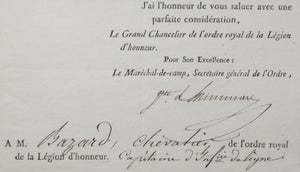 J'ai l'honneur de vous saluer avec une
parfaite considération,
Le Grand Chancelier de l'ordre royal de la Légion
d'honneur.
Pour Son Excellence :
Le Maréchal-de-camp, Secrétaire général de l'Ordre,
A M. Bazard, chevalier de l'ordre royal
de la Légion d'honneur. Capitaine d'Inf.rie de ligne